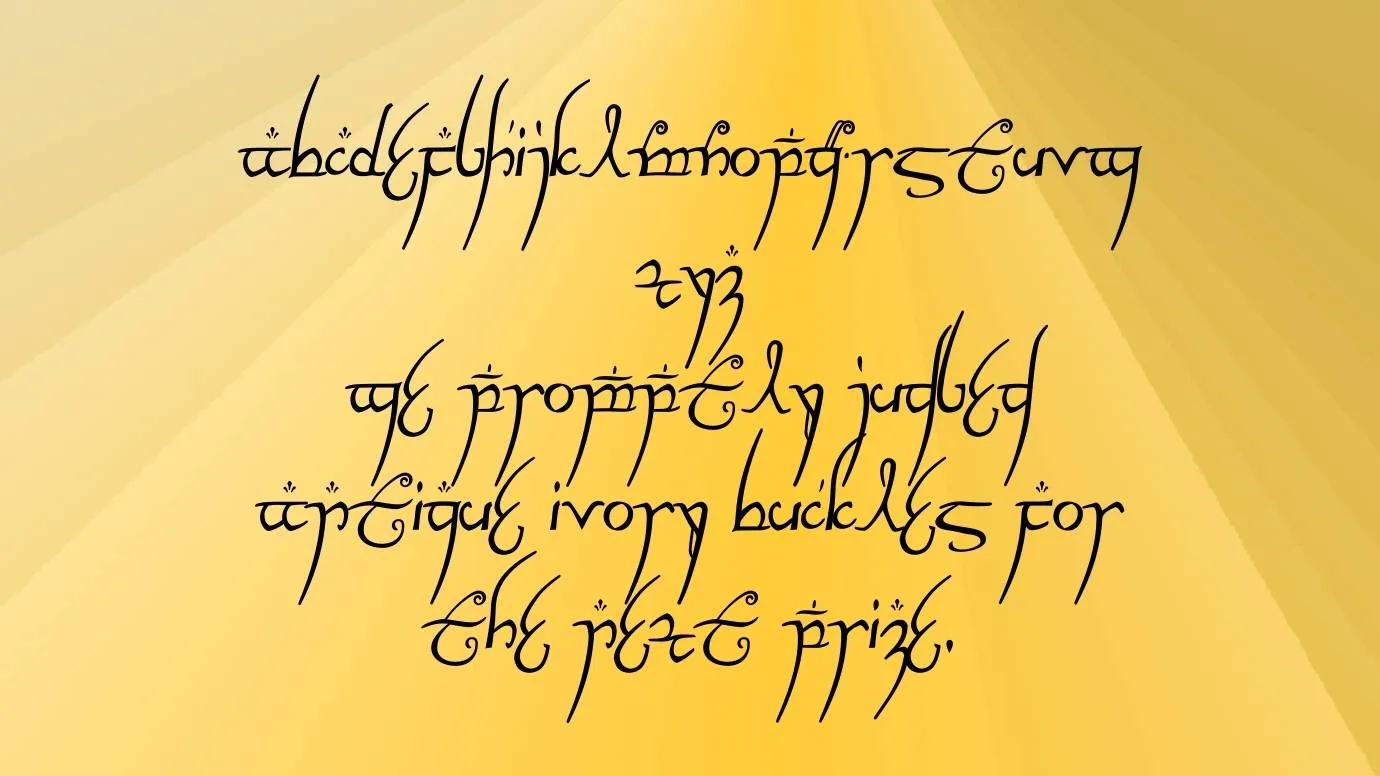 abcdefghijklmnopqrstuvw
xyz
we promptly judged
antique ivory buckles for
the next prize.